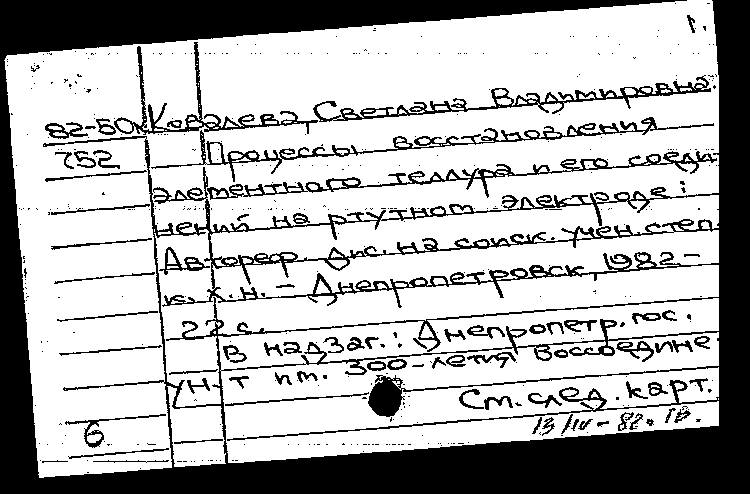 1.
82-50к Ковалева, Светлана Владимировна.
752 Процессы восстановления
элементного теллура и его соеди-
нений на ртутном электроде:
Автореф. дис. на соиск. учен. степ.
к. х. н. - Днепропетровск, 1982.-
22 с.
В надзаг.: Днепропетр. гос.
ун-т им. 300-летия Воссоедине-
См. след. карт.
6 13/IV-82.